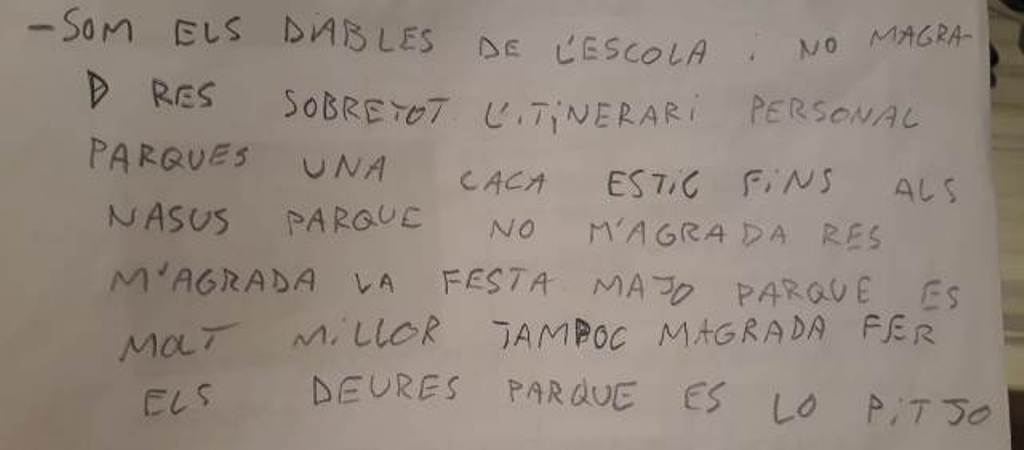 - SOM ELS DIABLES DE L'ESCOLA i NO MAGRA-
D RES SOBRETOT L'iTiNERARi PERSONAL
PARQUES UNA CACA ESTiC FiNS ALS
NASUS PARQUE NO M'AGRADA RES
M'AGRADA LA FESTA MAJO PARQUE ES
MOLT MiLLOR TAMPOC MAGRADA FER
ELS DEURES PARQUE ES LO PiTJO